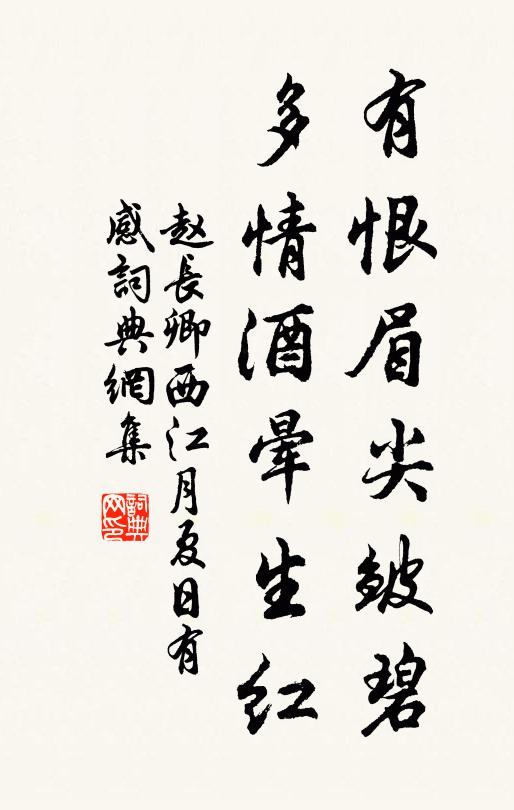 有恨眉尖皱碧
多情酒晕生红
赵長卿西江月夏日有
感詞典網集
詞典
网印